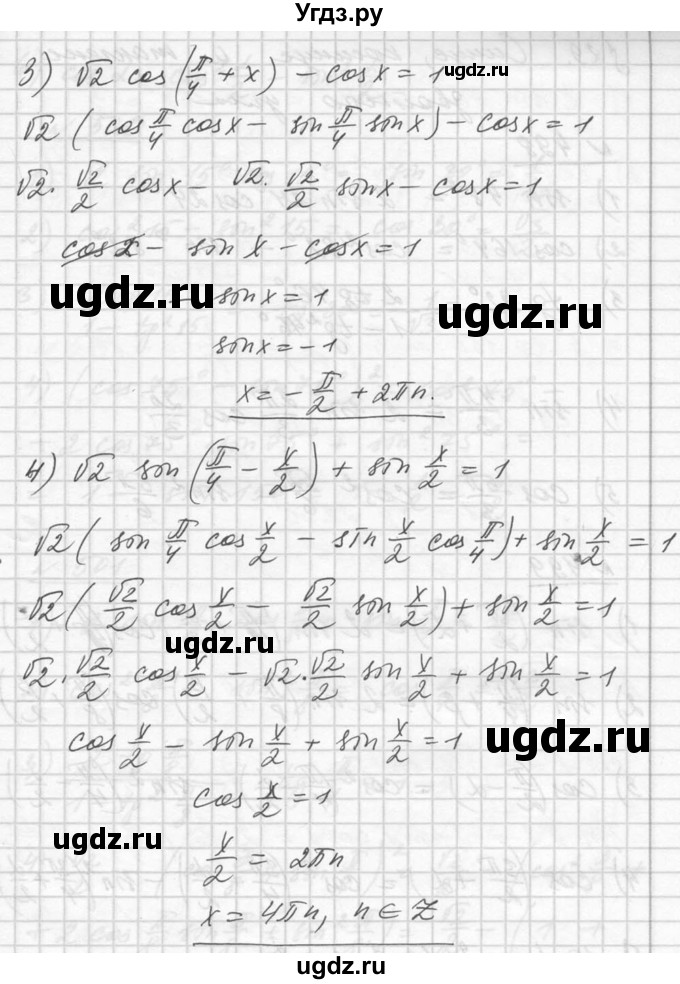 Угдз.ру
3) √2 cos(π/4 + x) - cosx = 1
ugdz.ru
√2 ( cos π/4 cosx - sin π/4 sinx) - cosx = 1
√2 · √2/2 cosx - √2 · √2/2 sinx - cosx = 1
cosx - sinx - cosx = 1
ugdz.ru
- sinx = 1
ugdz.ru
sinx = -1
x = - π/2 + 2πn.
4) √2 sin(π/4 - x/2) + sin x/2 = 1
√2 ( sin π/4 cos x/2 - sin x/2 cos π/4) + sin x/2 = 1
√2 ( √2/2 cos x/2 - √2/2 sin x/2) + sin x/2 = 1
ugdz.ru
√2 · √2/2 cos x/2 - √2 · √2/2 sin x/2 + sin x/2 = 1
cos x/2 - sin x/2 + sin x/2 = 1
ugdz.ru
cos x/2 = 1
ugdz.ru
x/2 = 2πn
x = 4πn, n ∈ Z
ugdz.ru